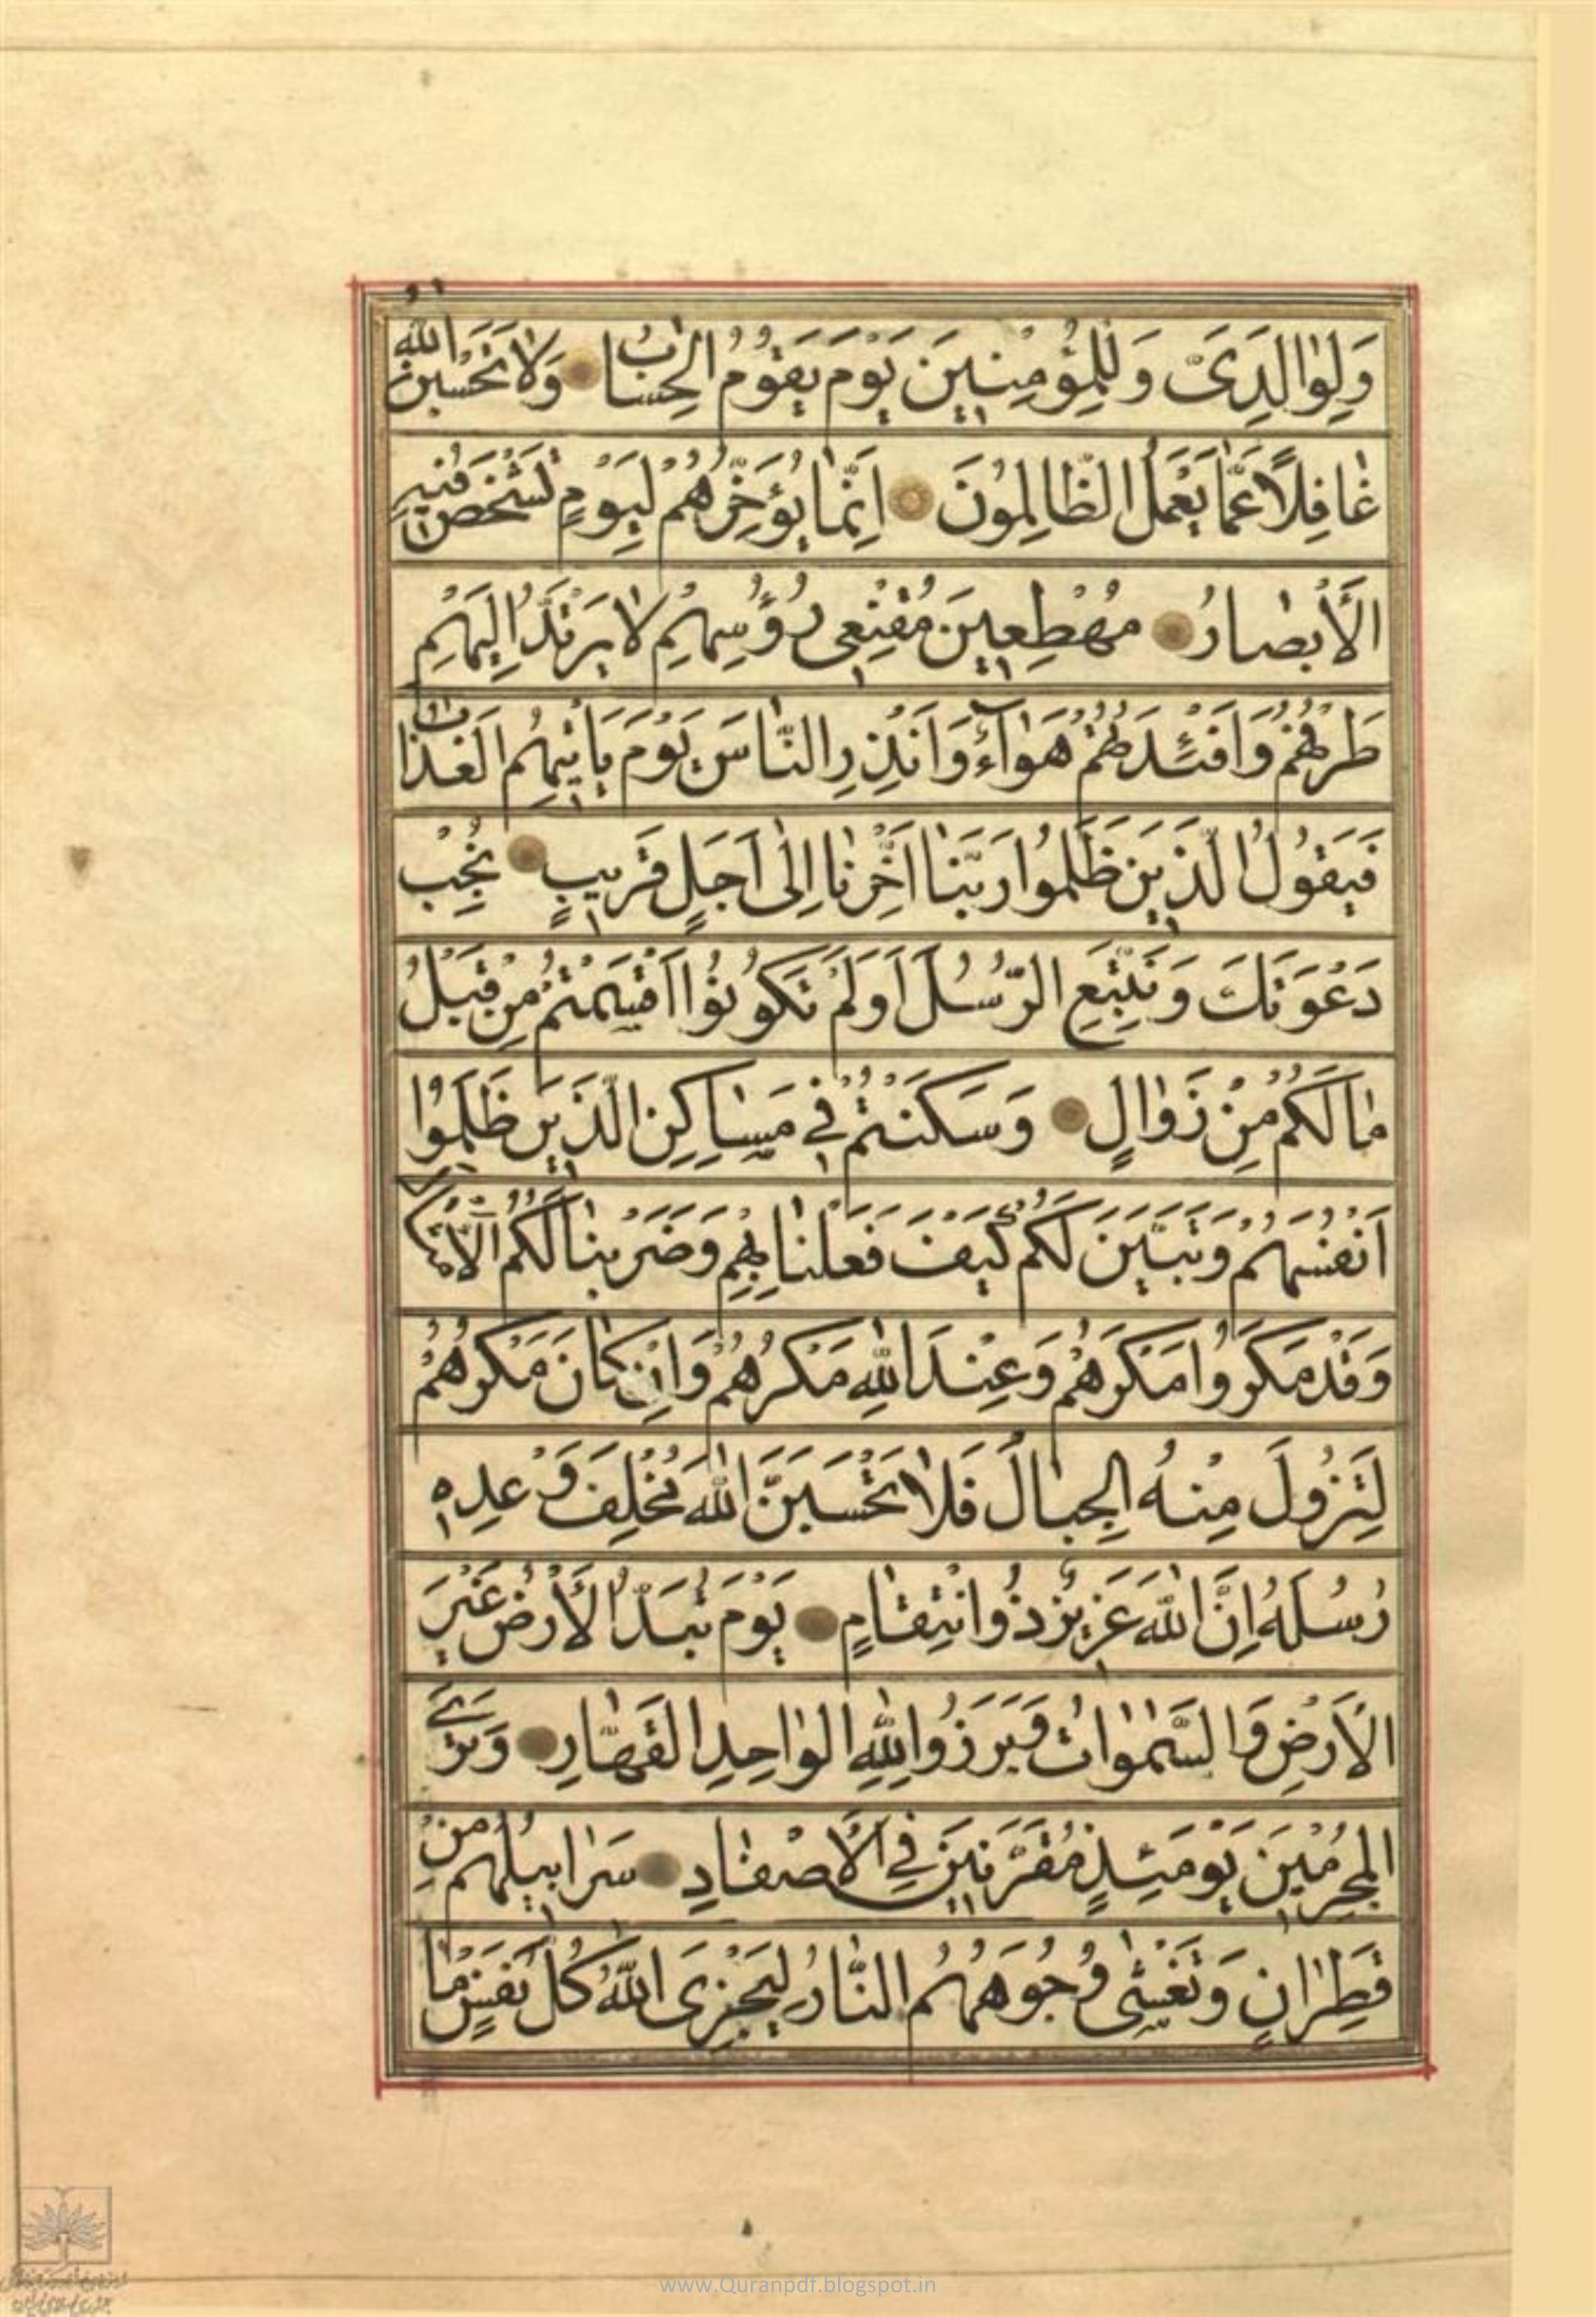 وَلِوٰالِدَىَّ وَلِلْمُؤْمِنٖينَ يَوْمَ يَقُومُ الْحِسٰابُ وَلٰا تَحْسَبَنَّ اللّٰهَ
غٰافِلًا عَمّٰا يَعْمَلُ الظّٰالِمُونَ اِنَّمٰا يُؤَخِّرُهُمْ لِيَوْمٍ تَشْخَصُ فٖيهِ
الْأَبْصٰارُ مُهْطِعٖينَ مُقْنِعٖى رُؤُسِهِمْ لٰا يَرْتَدُّ اِلَيْهِمْ
طَرْفُهُمْ وَاَفْئِدَتُهُمْ هَوٰآءٌ وَاَنْذِرِ النّٰاسَ يَوْمَ يَاْتٖيهِمُ الْعَذٰابُ
فَيَقُولُ الَّذٖينَ ظَلَمُوا رَبَّنٰا اَخِّرْنٰا اِلٰى اَجَلٍ قَرٖيبٍ نُجِبْ
دَعْوَتَكَ وَنَتَّبِعِ الرُّسُلَ اَوَلَمْ تَكُونُوا اَقْسَمْتُمْ مِنْ قَبْلُ
مٰا لَكُمْ مِنْ زَوٰالٍ وَسَكَنْتُمْ فٖي مَسٰاكِنِ الَّذٖينَ ظَلَمُوا
اَنْفُسَهُمْ وَتَبَيَّنَ لَكُمْ كَيْفَ فَعَلْنٰا بِهِمْ وَضَرَبْنٰا لَكُمُ الْاَمْثٰالَ
وَقَدْ مَكَرُوا مَكْرَهُمْ وَعِنْدَ اللّٰهِ مَكْرُهُمْ وَاِنْ كٰانَ مَكْرُهُمْ
لِتَزُولَ مِنْهُ الْجِبٰالُ فَلٰا تَحْسَبَنَّ اللّٰهَ مُخْلِفَ وَعْدِهٖ
رُسُلَهُ اِنَّ اللّٰهَ عَزٖيزٌ ذُو انْتِقٰامٍ يَوْمَ تُبَدَّلُ الْأَرْضُ غَيْرَ
الْاَرْضِ وَالسَّمٰوٰاتُ وَبَرَزُوا لِلّٰهِ الْوٰاحِدِ الْقَهّٰارِ وَتَرَى
الْمُجْرِمٖينَ يَوْمَئِذٍ مُقَرَّنٖينَ فِي الْاَصْفٰادِ سَرٰابٖيلُهُمْ مِنْ
قَطِرٰانٍ وَتَغْشٰى وُجُوهَهُمُ النّٰارُ لِيَجْزِىَ اللّٰهُ كُلَّ نَفْسٍ مٰا
www.Quranpdf.blogspot.in